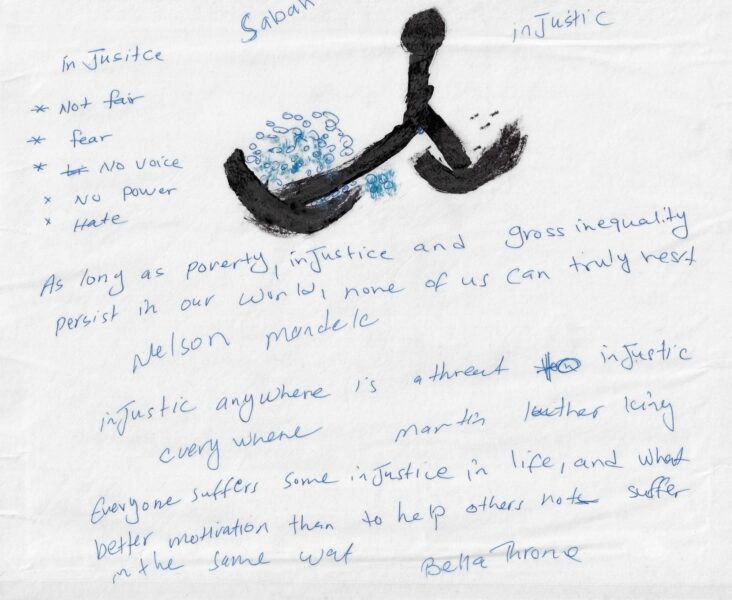 Sabah
injustic
in Jusitce
* Not fair
* fear
* No voice
* No Power
* Hate
As long as poverty, injustice and gross inequality
persist in our world, none of us can truly rest
Nelson mandela
injustic anywhere is a threat injustic
every where martin luther king
Everyone suffers some injustice in life, and what
better motivation than to help others not suffer
in the same wat
Bella Throne